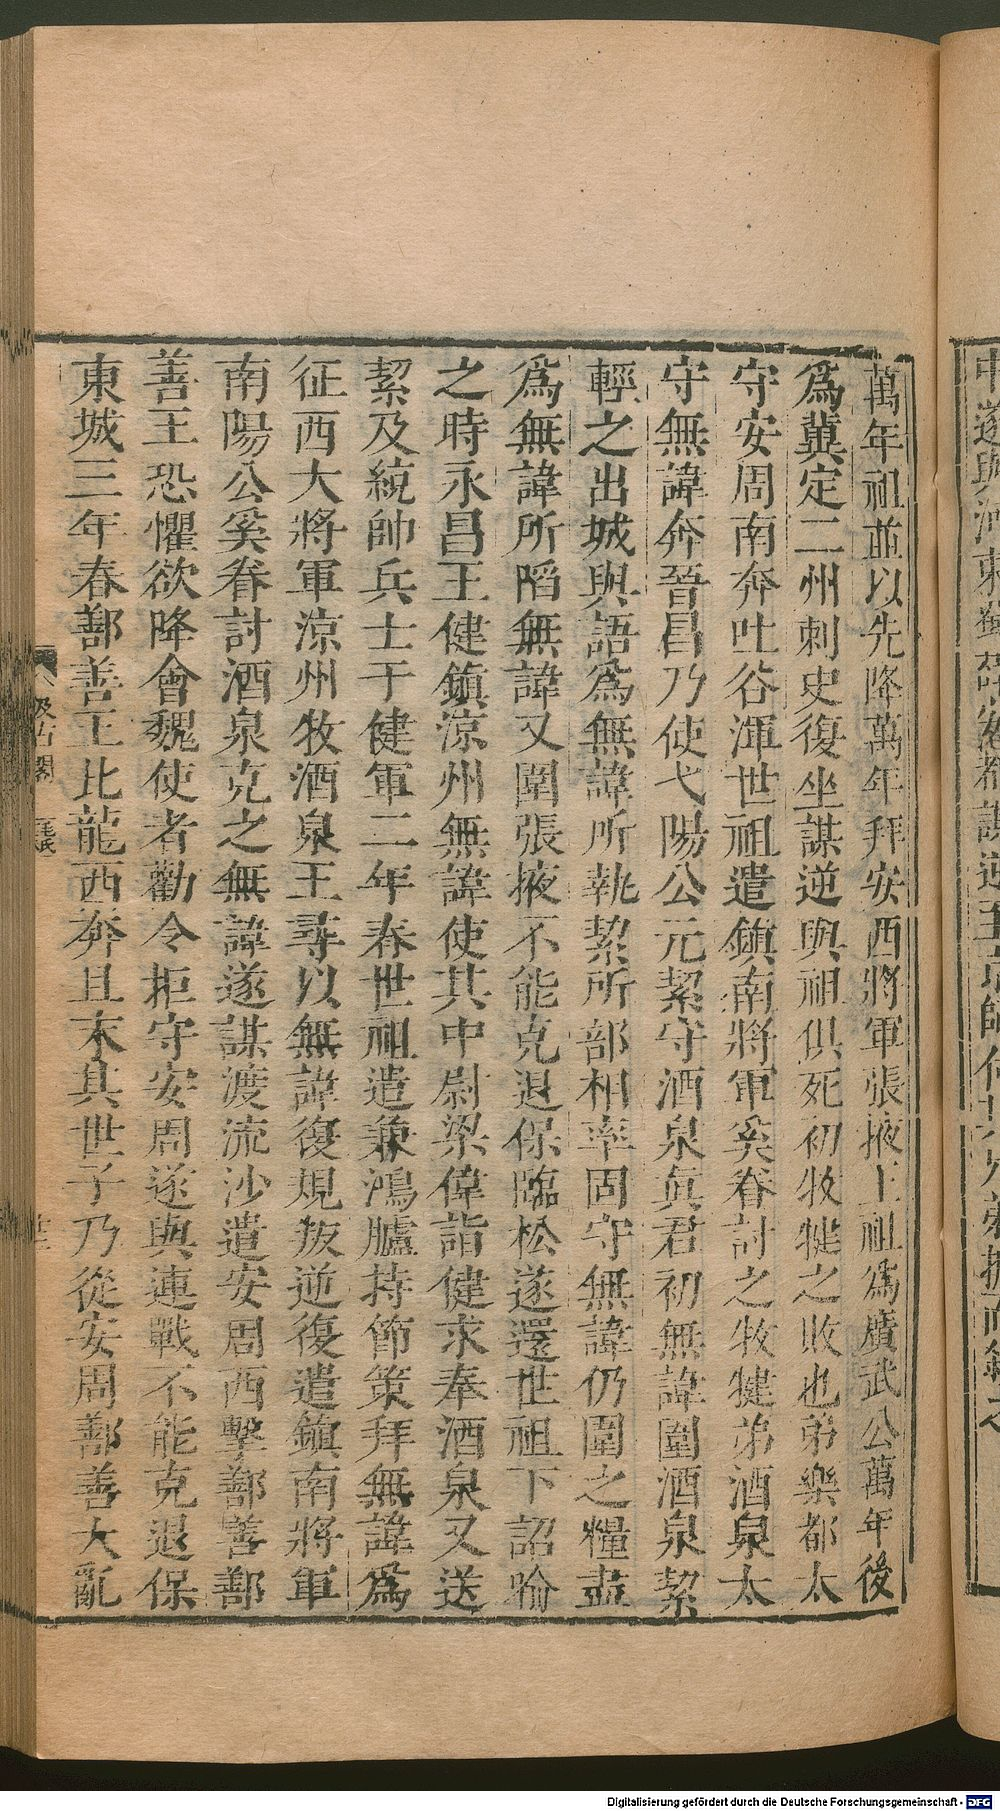 萬年祖並以先降萬年拜安西將軍張掖王祖為廣武公萬年後
為冀定二州刺史復坐謀逆與祖俱死初牧犍之敗也弟樂都太
守安周南奔吐谷渾世祖遣鎮南將軍奚眷討之牧犍弟酒泉太
守無諱奔晉昌乃使弋陽公元絜守酒泉眞君初無諱圍酒泉絜
輕之出城與語為無諱所執絜所部相率固守無諱仍圍之糧盡
為無諱所陷無諱又圍張掖不能克退保臨松遂還世祖下詔喻
之時永昌王健鎮涼州無諱使其中尉梁偉詣健求奉酒泉又送
絜及統帥兵士于健軍二年春世祖遣兼鴻臚持節策拜無諱為
征西大將軍涼州牧酒泉王尋以無諱復規叛逆復遣鎮南將軍
南陽公奚眷討酒泉克之無諱遂謀渡流沙遣安周西擊鄯善鄯
善王恐懼欲降會魏使者勸令拒守安周遂與連戰不能克退保
東城三年春鄯善王比龍西奔且末其世子乃從安周鄯善大亂
汲古閣
Digitalisierung gefördert durch die Deutsche Forschungsgemeinschaft - DFG